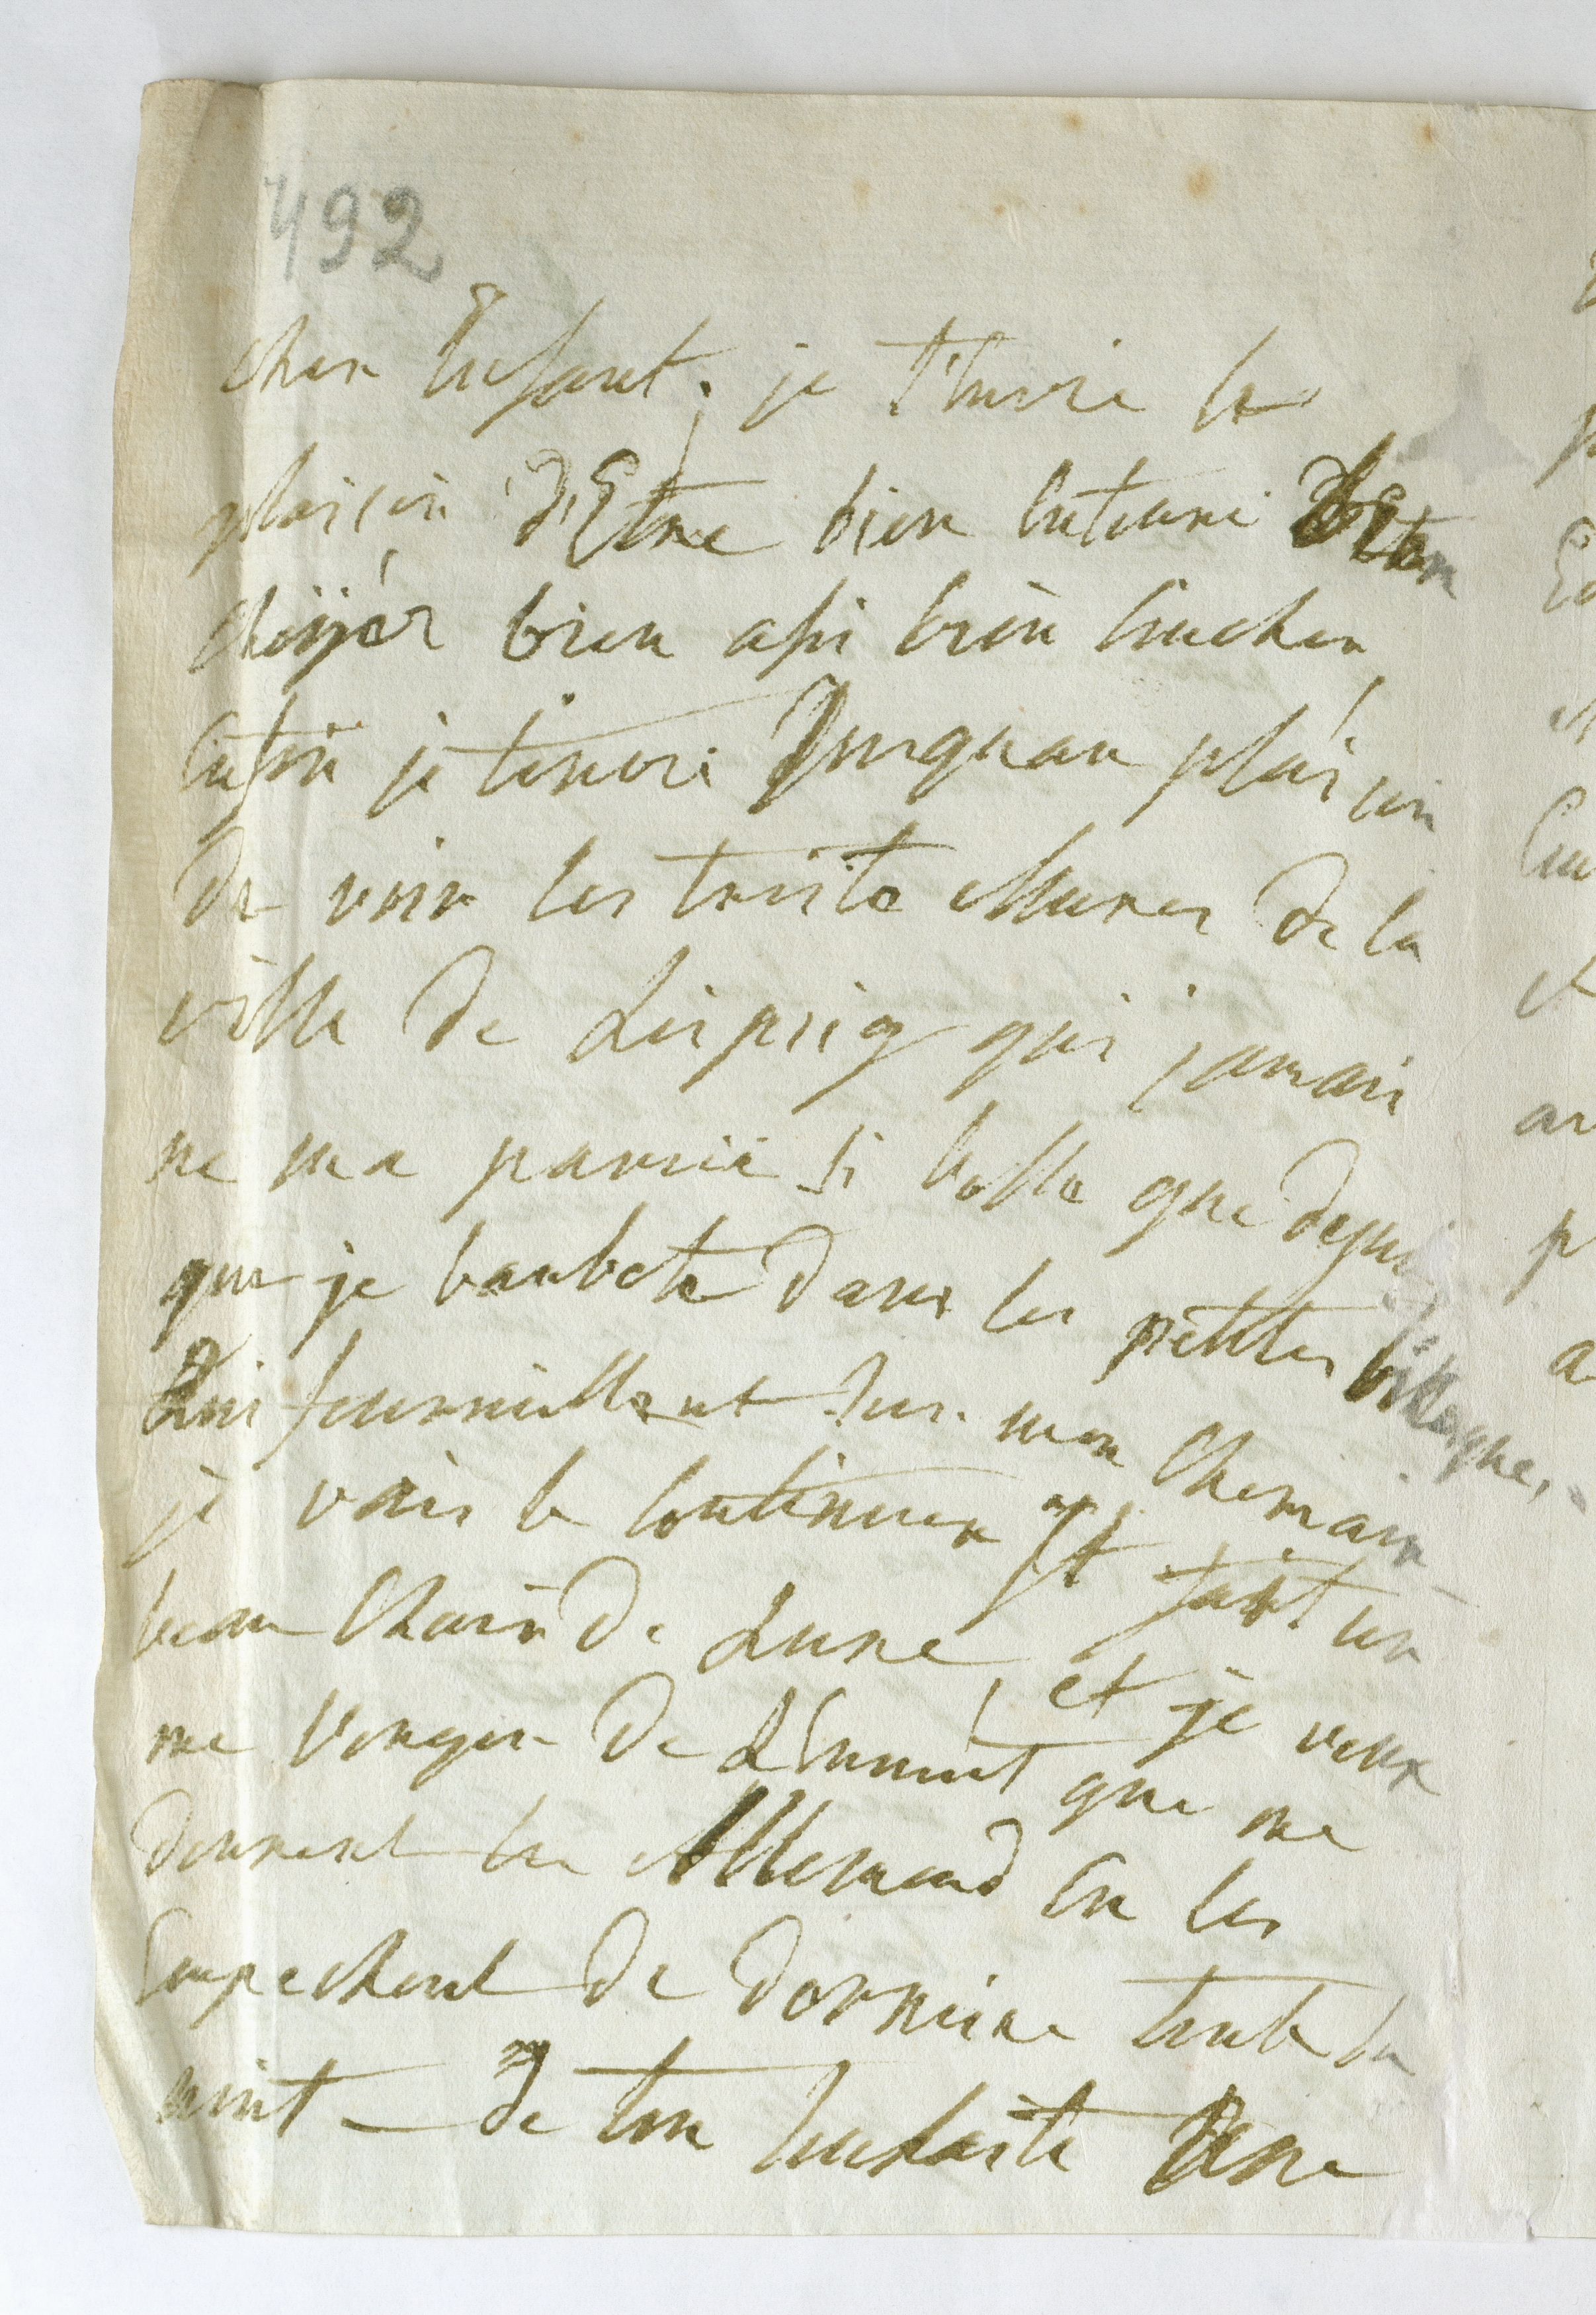 492
cher Enfant, je t'envie le
plaisir d'Estre bien entouré d'Estre
choijér bien assi bien coucher
enfin j'etenvie Jusquau plaisir
de voir les triste Mures de la
ville de Leipsig qui jamais
ne ma paruie si belle que depuis
que je barbote dans les petites villages,
Qui fourmillent sur mon Chemain
je vais le continuer il fait un
beau Clair de Lune, et je veux
me venger de L'ennuit que me
donnent les Allemand en les
empechent de dormire toute la
nuit — de ton